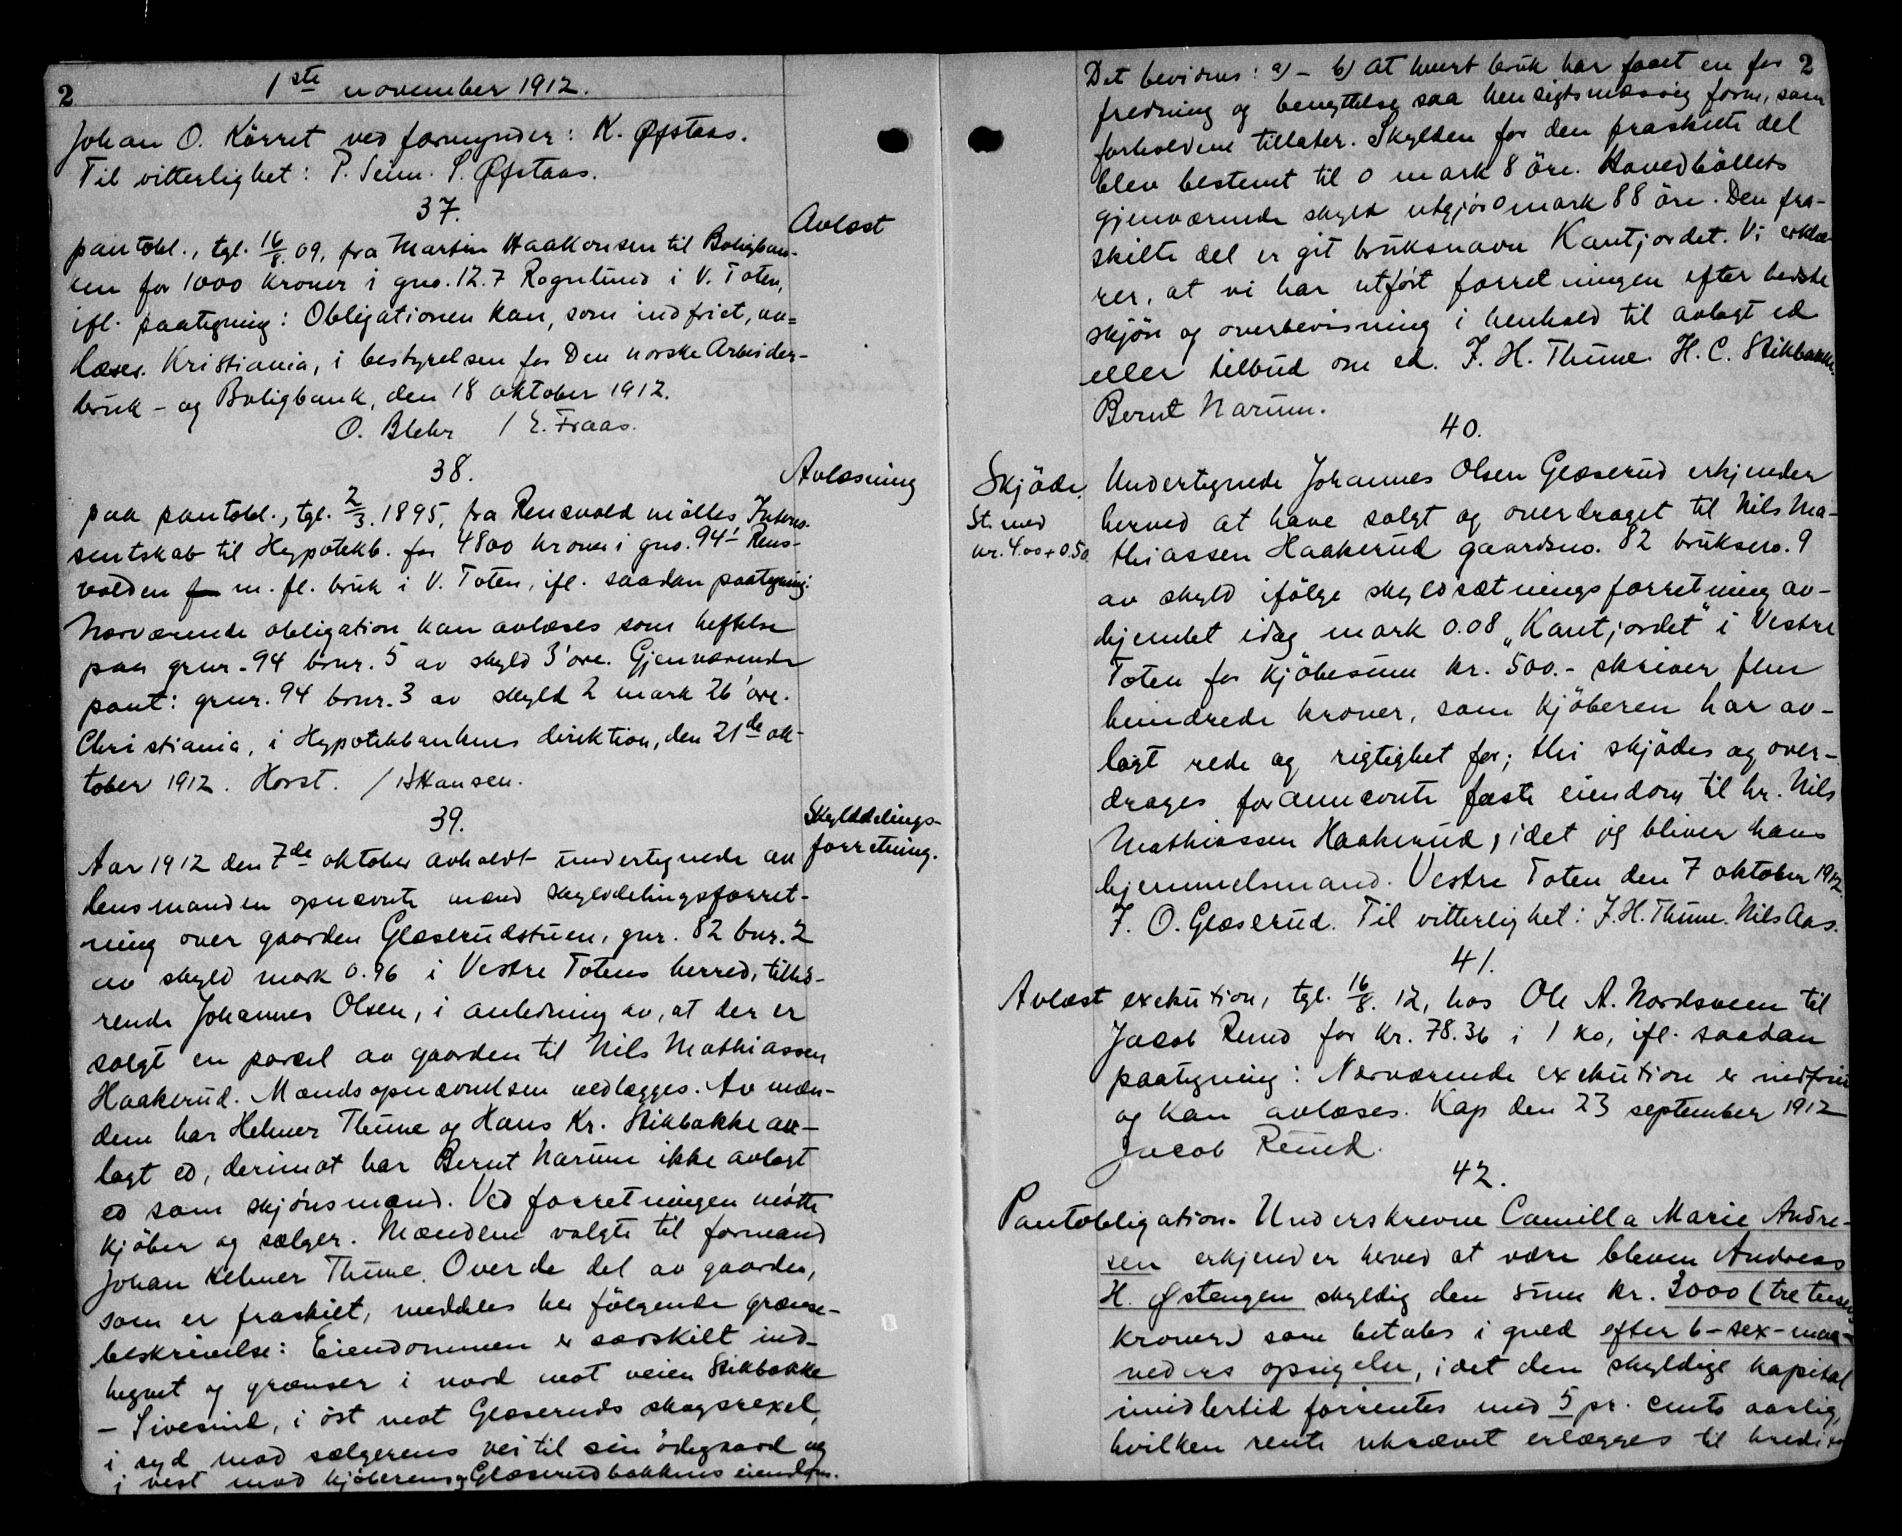 2
1ste november 1912.
Johan O. Körret ved formynder: K. Øfstaas.
Til vitterlighet: P. Seim. S. Øfstaas.
37.
Avlæst
pantobl., tgl. 16/8.09, fra Martin Haakonsen til Boligban-
ken for 1000 kroner i gno. 12.7 Rognlund i V. Toten,
ifl. paategning: Obligationen kan, som indfriet, av=
læses. Kristiania, i bestyrelsen for Den norske Arbeider-
bruk- og Boligbank, den 18 oktober 1912.
O. Blehr / E. Fraas.
38.
Avlæsning
paa pantobl., tgl. 2/3.1895, fra Rensvold mölles Interes-
sentskab til Hypotekb. for 4800 kroner i gno. 94 Rens-
volden m. fl. bruk i V. Toten, ifl. saadan paategning:
Nærværende obligation kan avlæses som heftelse
paa grnr. 94 brnr. 5 av skyld 3 öre. Gjenværende
pant: grnr. 94 brnr. 3 av skyld 2 mark 26 öre.
Christiania, i Hypotekbankens direktion, den 21de ok-
tober 1912. Horst. / Hansen.
39.
Skylddelings-
forretning.
Aar 1912 den 7de oktober avholdt undertegnede av
lensmanden opnævnte mænd skylddelingsforret-
ning over gaarden Glæserudstuen, gnr. 82 bnr. 2
av skyld mark 0.96 i Vestre Totens herred, tilhö-
rende Johannes Olsen, i anledning av, at der er
solgt en parcel av gaarden til Nils Mathiassen
Haakerud. Mændsopnævnelsen vedlægges. Av mæn-
dene har Helmer Thune og Hans Kr. Stikbakke av-
lagt ed, derimot har Bernt Narum ikke avlagt
ed som skjönsmand. Ved forretningen mötte
kjöber og sælger. Mændene valgte til formand
Johan Helmer Thune. Over de del av gaarden,
som er fraskilt, meddeles her fölgende grænse-
beskrivelse: Eiendommen er særskilt ind-
hegnet og grænser i nord mot veien Stikbakke
- Sivesind, i öst mot Glæseruds skogsrexel,
i syd mod sælgerens vei til sin ödegaard og
i vest mod kjöberens og Glæserudbakkens eiendom.
2
Det bevidnes: a) - b) at hvert bruk har faaet en for
fredning og benyttelse saa hensigtsmæssig form, som
forholdene tillater. Skylden for den fraskilte del
blev bestemt til 0 mark 8 öre. Hovedböllets
gjenværende skyld utgjör 0 mark 88 öre. Den fra-
skilte del er git bruksnavn Kantjordet. Vi erklæ-
rer, at vi har utfört forretningen efter bedste
skjön og overbevisning i henhold til avlagt ed
eller tilbud om ed. J. H. Thune. H. C. Stikbakke.
Bernt Narum.
40.
Skjöde.
St. med
kr. 4.00 + 0.50
Undertegnede Johannes Olsen Glæserud erkjender
herved at have solgt og overdraget til Nils Ma-
thiassen Haakerud gaardsno. 82 bruksno. 9
av skyld ifölge skyldsætningsforretning av-
hjemlet idag mark 0.08 "Kantjordet" i Vestre
Toten for kjöbesum kr. 500.- skriver fem
hundrede kroner, som kjöberen har av-
lagt rede og rigtighet for; thi skjödes og over-
drages forannævnte faste eiendom til hr. Nils
Mathiassen Haakerud, idet jeg bliver hans
hjemmelsmand. Vestre Toten den 7 oktober 1912
J. O. Glæserud. Til vitterlighet: J. H. Thune. Nils Aas.
41.
Avlæst exekution, tgl. 16/8.12, hos Ole A. Nordsveen til
Jacob Rund for kr. 78.36 i 1 ko, ifl. saadan
paategning: Nærværende exekution er indfriet
og kan avlæses. Kap den 23 september 1912
Jacob Rund.
42.
Pantobligation. Underskrevne Camilla Marie Andre-
sen erkjender herved at være bleven Andreas
H. Østengen skyldig den sum kr. 3000 (tre tusen
kroner) som betales i gjeld efter 6-sex-maa-
neders opsigelse, idet den skyldige kapital
imidlertid forrentes med 5 pr. cents aarlig,
hvilken rente ukrævet erlægges til